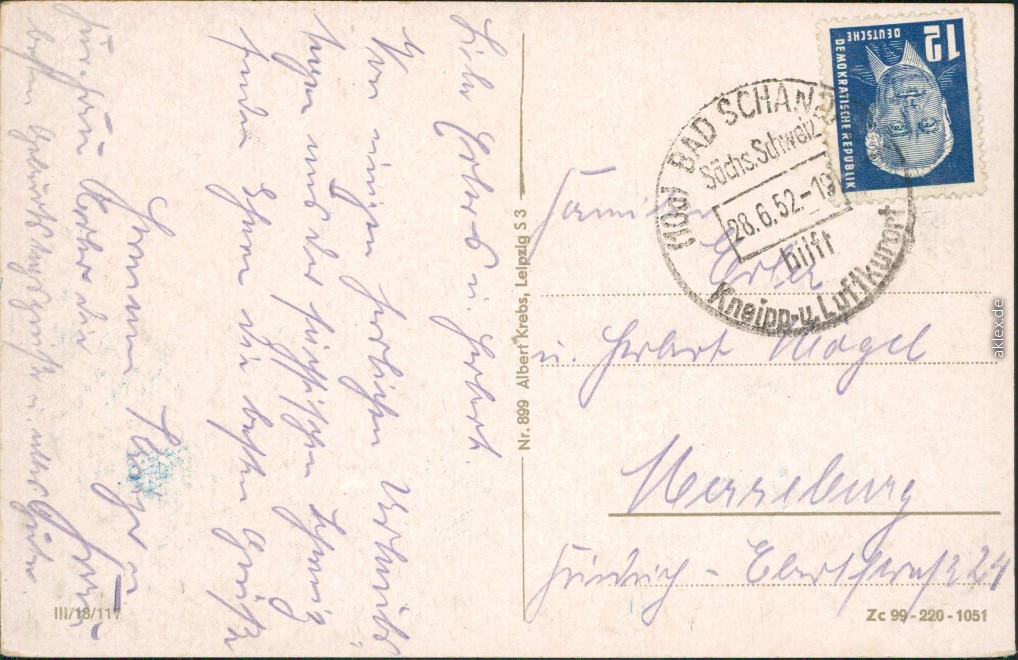 Liebe Erlers u. Herbert.
Von einigen herrlichen Urlaubs-
tagen aus der sächsischen Schweiz
senden Ihnen die besten Grüße
Hermann
Frau
die
besten Geburtstagsgrüße u. alles Gute.
Nr. 899 Albert Krebs, Leipzig S 3
III/18/117
DEUTSCHE
DEMOKRATISCHE REPUBLIK
12
BAD SCHANDAU
Sächs. Schweiz
28.6.52.-19
hilft
Kneipp-u. Luftkurort
Familie
Erler
u. Herbert Mögel
Merseburg
Friedrich-Ebertstraße 24
Zc 99-220-1051
aklex.de